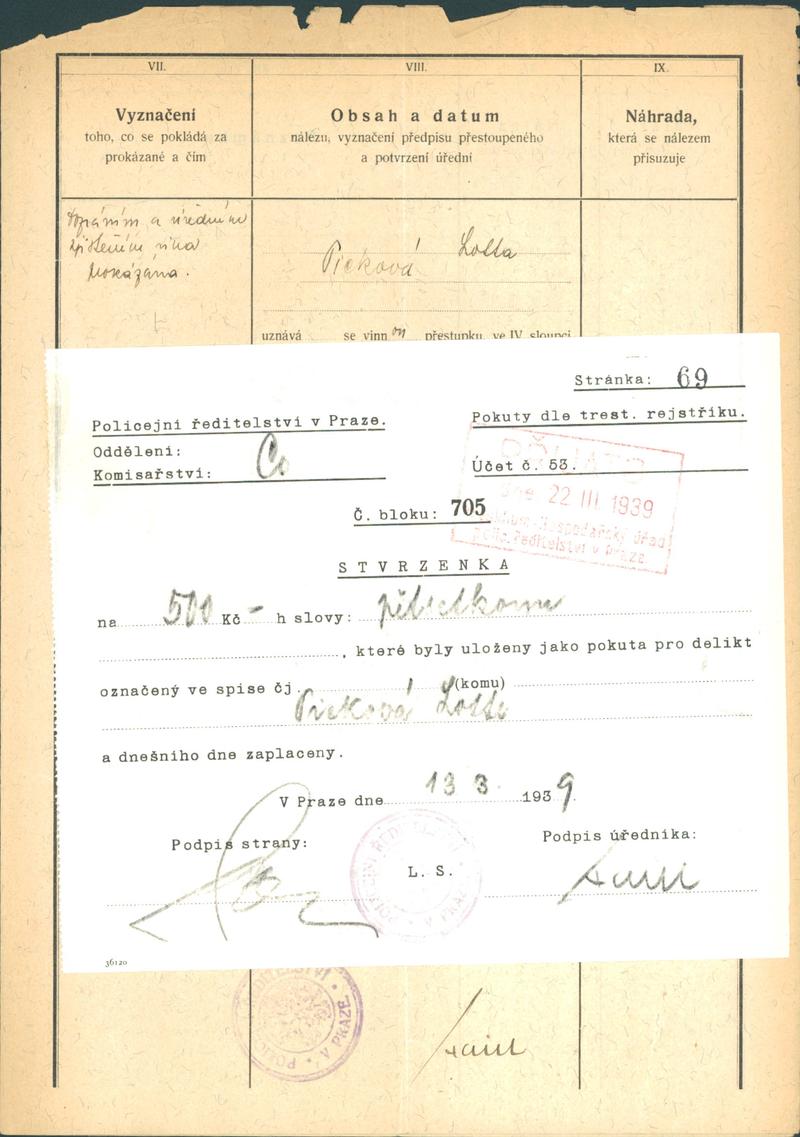 VII.
VIII.
IX.
Vyznačení
toho, co se pokládá za
prokázané a čím
Obsah a datum
nálezu, vyznačení předpisu přestoupeného
a potvrzení úřední
Náhrada,
která se nálezem
přisuzuje
a úředním
vina
Picková Lotta
uznává se vinnou přestupku, ve IV. sloupci
Stránka: 69
Policejní ředitelství v Praze.
Pokuty dle trest. rejstříku.
Oddělení:
Komisařství: Co
Účet č. 53.
dne 22 III 1939
Hospodářský úřad
Polic. ředitelství v Praze
Č. bloku: 705
STVRZENKA
na 500 Kč - h slovy: pětsetkorun
, které byly uloženy jako pokuta pro delikt
označený ve spise čj. (komu)
Picková Lotte
a dnešního dne zaplaceny.
V Praze dne 13 3. 1939.
Podpis strany:
Podpis úředníka:
L. S.
POLICEJNÍ ŘEDITELSTVÍ V PRAZE
36120
POLICEJNÍ ŘEDITELSTVÍ • V PRAZE •